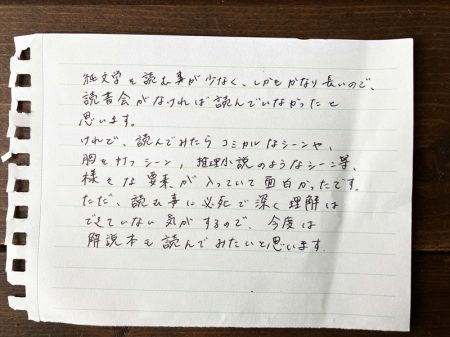 純文学を読む事が少なく、しかもかなり長いので、
読書会がなければ読んでいなかったと
思います。
けれど、読んでみたらコミカルなシーンや、
胸を打つシーン、推理小説のようなシーン等、
様々な要素が入っていて面白かったです。
ただ、読む事に必死で深く理解は
できていない気がするので、今度は
解説本も読んでみたいと思います。